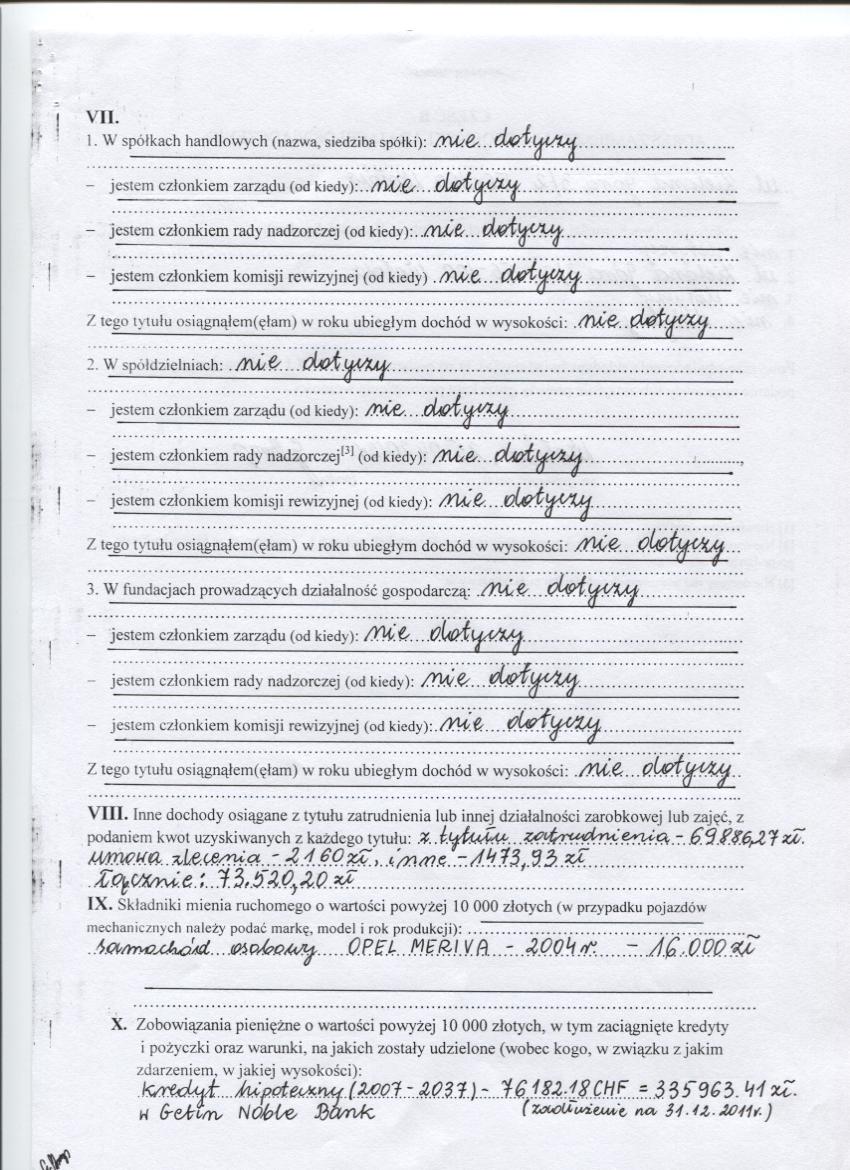 VII.
1. W spółkach handlowych (nazwa, siedziba spółki): nie dotyczy
– jestem członkiem zarządu (od kiedy): nie dotyczy
– jestem członkiem rady nadzorczej (od kiedy): nie dotyczy
– jestem członkiem komisji rewizyjnej (od kiedy) nie dotyczy
Z tego tytułu osiągnąłem(ęłam) w roku ubiegłym dochód w wysokości: nie dotyczy
2. W spółdzielniach: nie dotyczy
– jestem członkiem zarządu (od kiedy): nie dotyczy
– jestem członkiem rady nadzorczej[3] (od kiedy): nie dotyczy,
– jestem członkiem komisji rewizyjnej (od kiedy): nie dotyczy
Z tego tytułu osiągnąłem(ęłam) w roku ubiegłym dochód w wysokości: nie dotyczy
3. W fundacjach prowadzących działalność gospodarczą: nie dotyczy
– jestem członkiem zarządu (od kiedy): nie dotyczy
– jestem członkiem rady nadzorczej (od kiedy): nie dotyczy
– jestem członkiem komisji rewizyjnej (od kiedy): nie dotyczy
Z tego tytułu osiągnąłem(ęłam) w roku ubiegłym dochód w wysokości: nie dotyczy
VIII. Inne dochody osiągane z tytułu zatrudnienia lub innej działalności zarobkowej lub zajęć, z
podaniem kwot uzyskiwanych z każdego tytułu: z tytułu zatrudnienia - 69886,27 zł.
umowa zlecenia - 2160 zł, inne - 1473,93 zł
łącznie: 73.520,20 zł
IX. Składniki mienia ruchomego o wartości powyżej 10 000 złotych (w przypadku pojazdów
mechanicznych należy podać markę, model i rok produkcji):
samochód osobowy OPEL MERIVA - 2004 r. - 16.000 zł
X. Zobowiązania pieniężne o wartości powyżej 10 000 złotych, w tym zaciągnięte kredyty
i pożyczki oraz warunki, na jakich zostały udzielone (wobec kogo, w związku z jakim
zdarzeniem, w jakiej wysokości):
kredyt hipoteczny (2007 - 2037) - 76182.18 CHF = 335963.41 zł.
w Getin Noble Bank (zadłużenie na 31.12.2011r.)